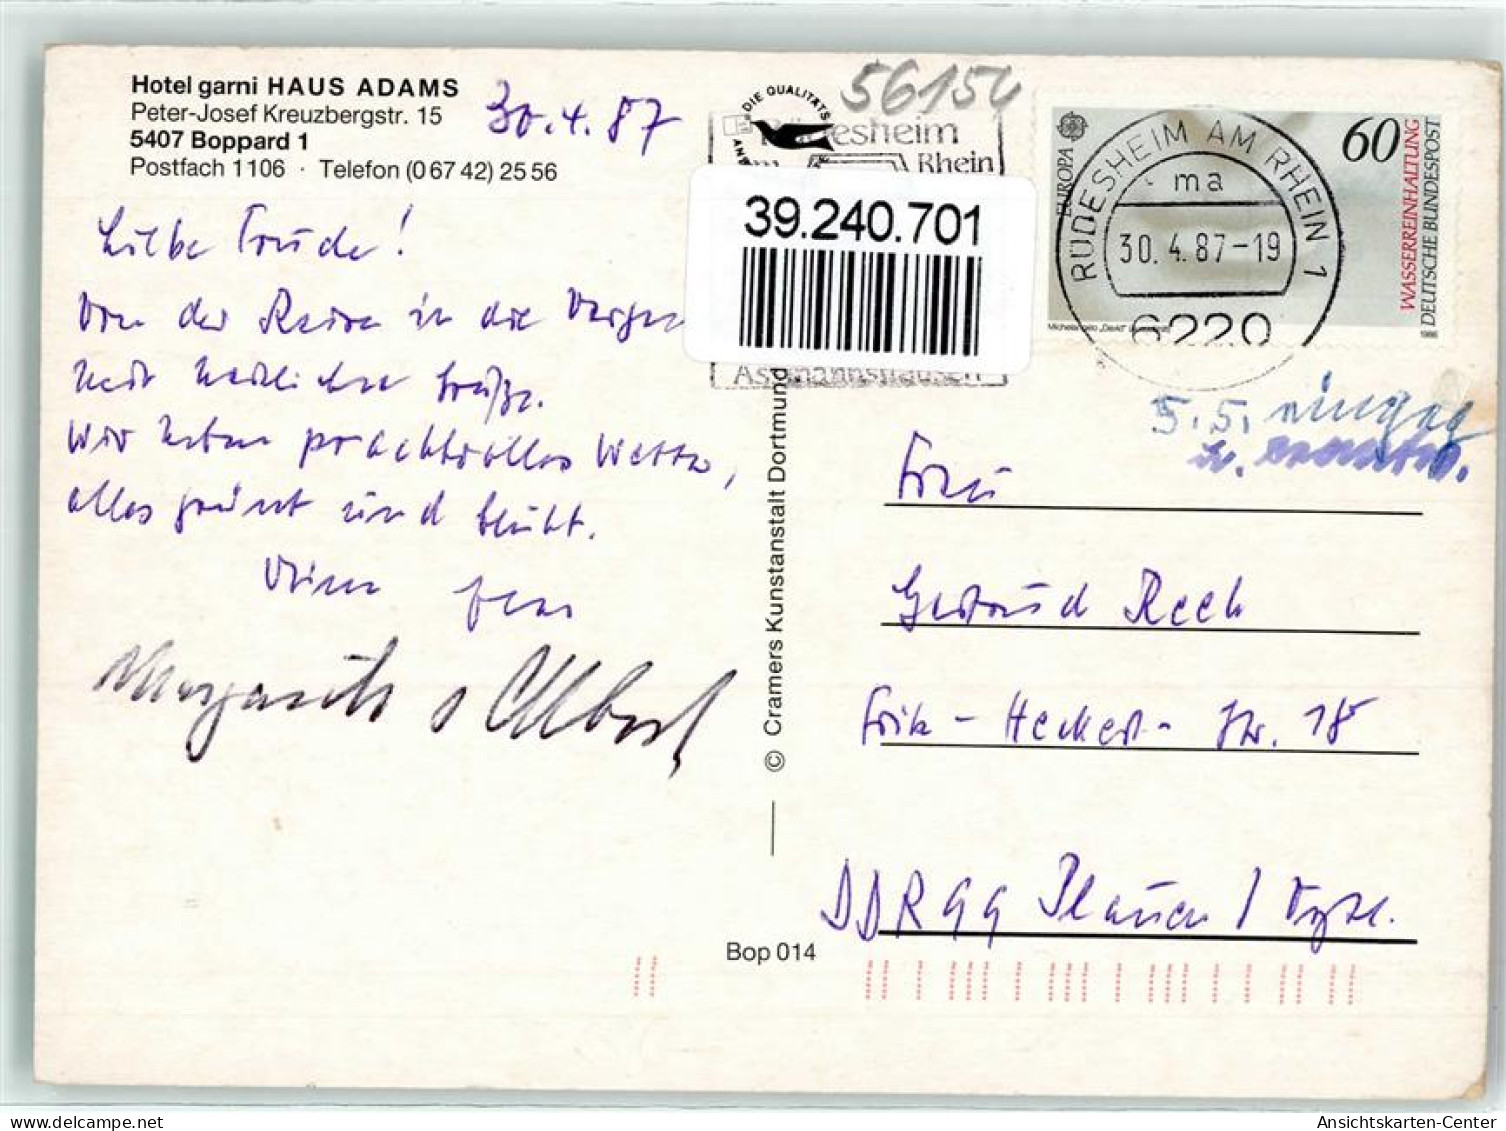 Hotel garni HAUS ADAMS
Peter-Josef Kreuzbergstr. 15
5407 Boppard 1
Postfach 1106 · Telefon (0 67 42) 25 56
30.4.87
Liebe Trude!
Von der Reise in die
herzlichen Grüße.
Wir haben prachtvolles Wetter,
alles grünt und blüht.
Margarete
56154
DIE QUALITÄTS
Rhein
39.240.701
Assmannshausen
EUROPA
60
WASSERREINHALTUNG
DEUTSCHE BUNDESPOST
Michelangelo „David"
1986
RÜDESHEIM AM RHEIN 1
ma
30.4.87-19
6220
5.5.
Frau
Gertrud Rech
Fritz-Heckert-Str. 18
DDR 99 Plauen / Vogtl.
© Cramers Kunstanstalt Dortmund
Bop 014
delcampe.net
Ansichtskarten-Center